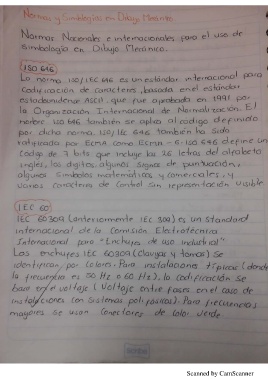 Normas y Simbologías en Dibujo Mecánico
Normas Nacionales e internacionales para el uso de
Simbología en Dibujo Mecánico.
ISO 646
La norma ISO/IEC 646 es un estándar internacional para
Codificación de caracteres, basada en el estándar
estadounidense ASCII que fue aprobado en 1991 por
la Organización Internacional de Normalización. El
nombre ISO 646 también se aplica al código definido
por dicha norma. ISO/IEC 646 también ha sido
ratificada por ECMA como ECMA-6. ISO 646 define un
Código de 7 bits que incluye las 26 letras del alfabeto
inglés, los dígitos, algunos signos de puntuación,
algunos símbolos matemáticos y comerciales, y
varios caracteres de control sin representación visible
IEC 60
IEC 60309 (anteriormente IEC 309) es un standard
internacional de la Comisión Electrotécnica
Internacional para "Enchufes de uso industrial"
Los enchufes IEC 60309 (Clavijas y tomas) se
identifican por Colores. Para instalaciones típicas (donde
la frecuencia es 50 Hz o 60 Hz), la codificación se
basa en el voltaje (Voltaje entre fases en el caso de
instalaciones con sistemas polifásicos). Para frecuencias
mayores se usan conectores de color verde.
scribe
Scanned by CamScanner